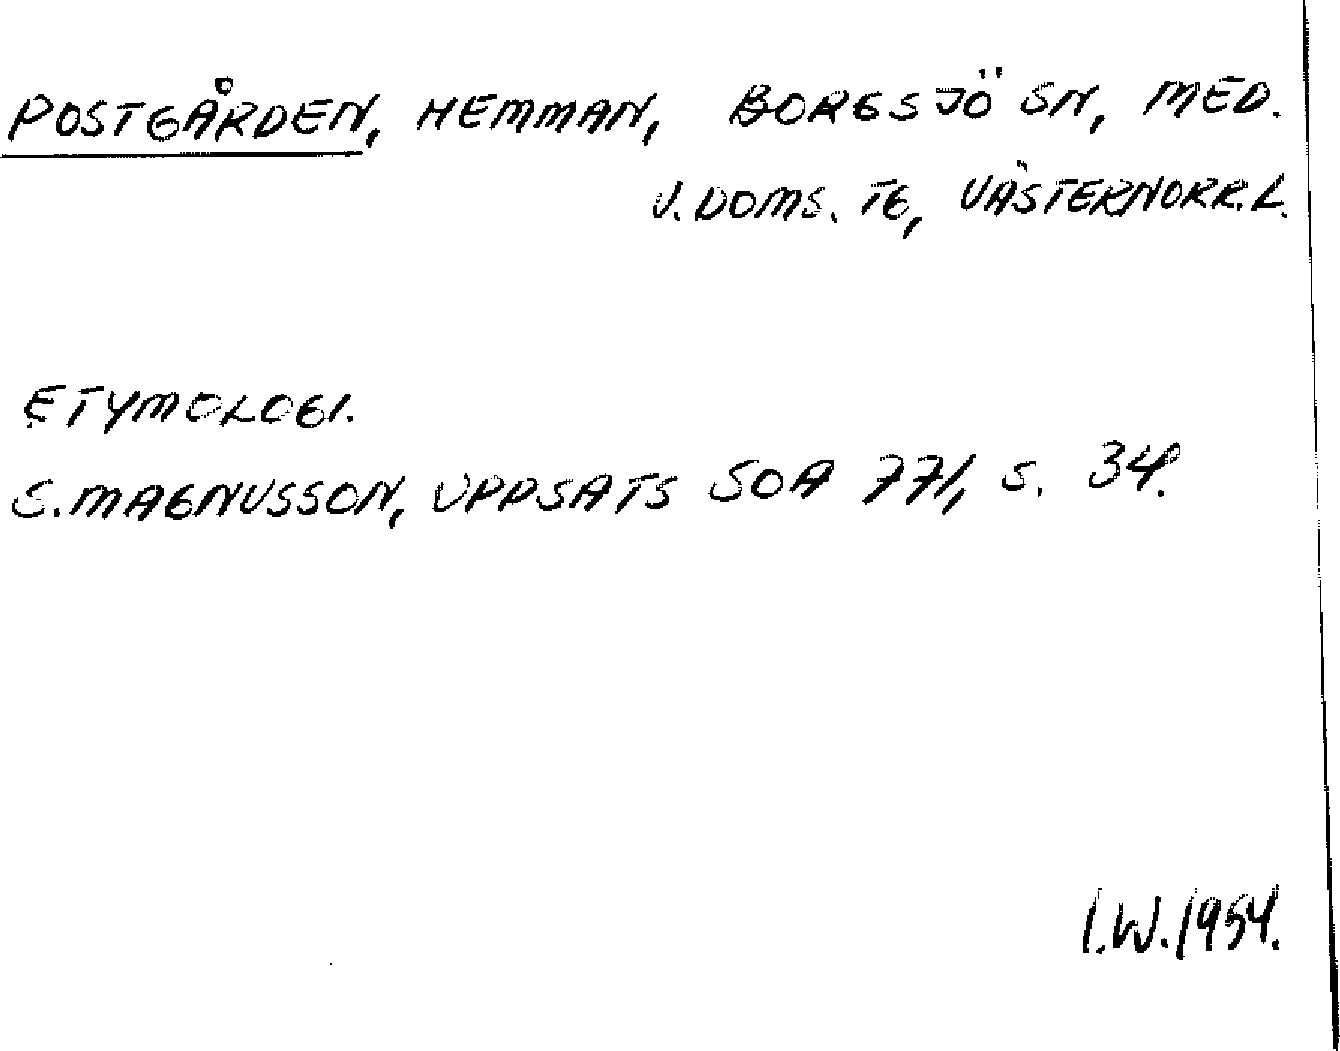 POSTGÅRDEN, HEMMAN, BORGSJÖ SN, MED.
V. DOMS. TG, VÄSTERNORR.L.
ETYMOLOGI.
S. MAGNUSSON, UPPSATS SOA 771, S. 34.
I.W. 1954.